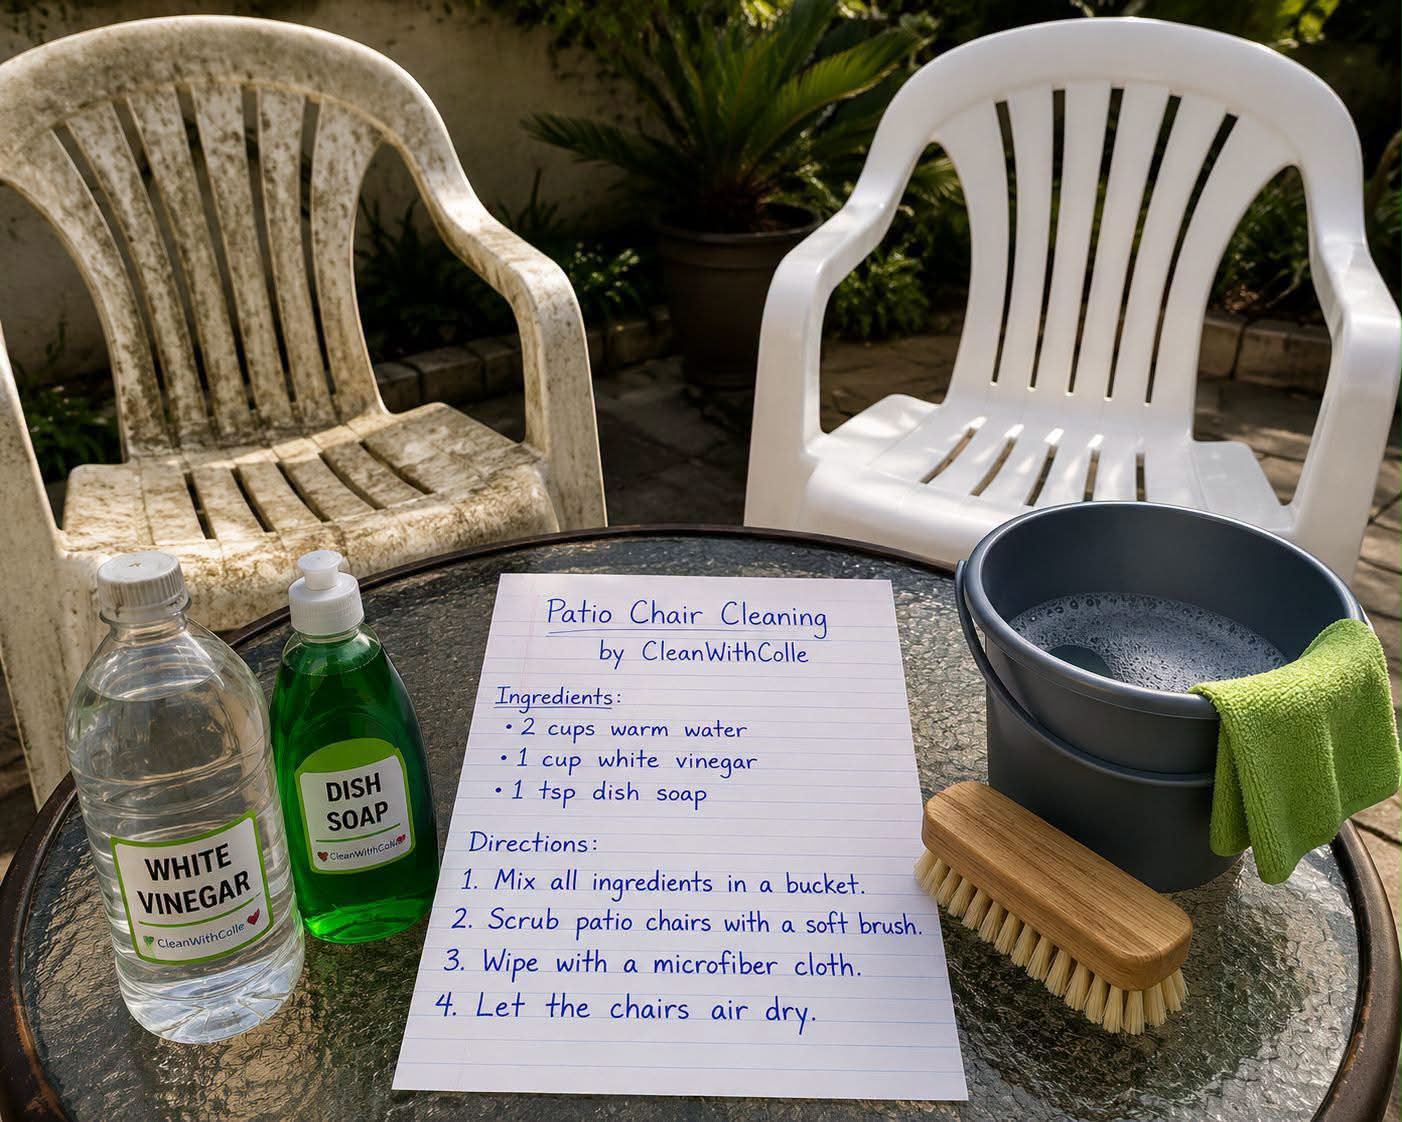 Patio Chair Cleaning
by CleanWithColle
Ingredients:
• 2 cups warm water
• 1 cup white vinegar
• 1 tsp dish soap
Directions:
1. Mix all ingredients in a bucket.
2. Scrub patio chairs with a soft brush.
3. Wipe with a microfiber cloth.
4. Let the chairs air dry.
WHITE
VINEGAR
CleanWithColle
DISH
SOAP
CleanWithColle